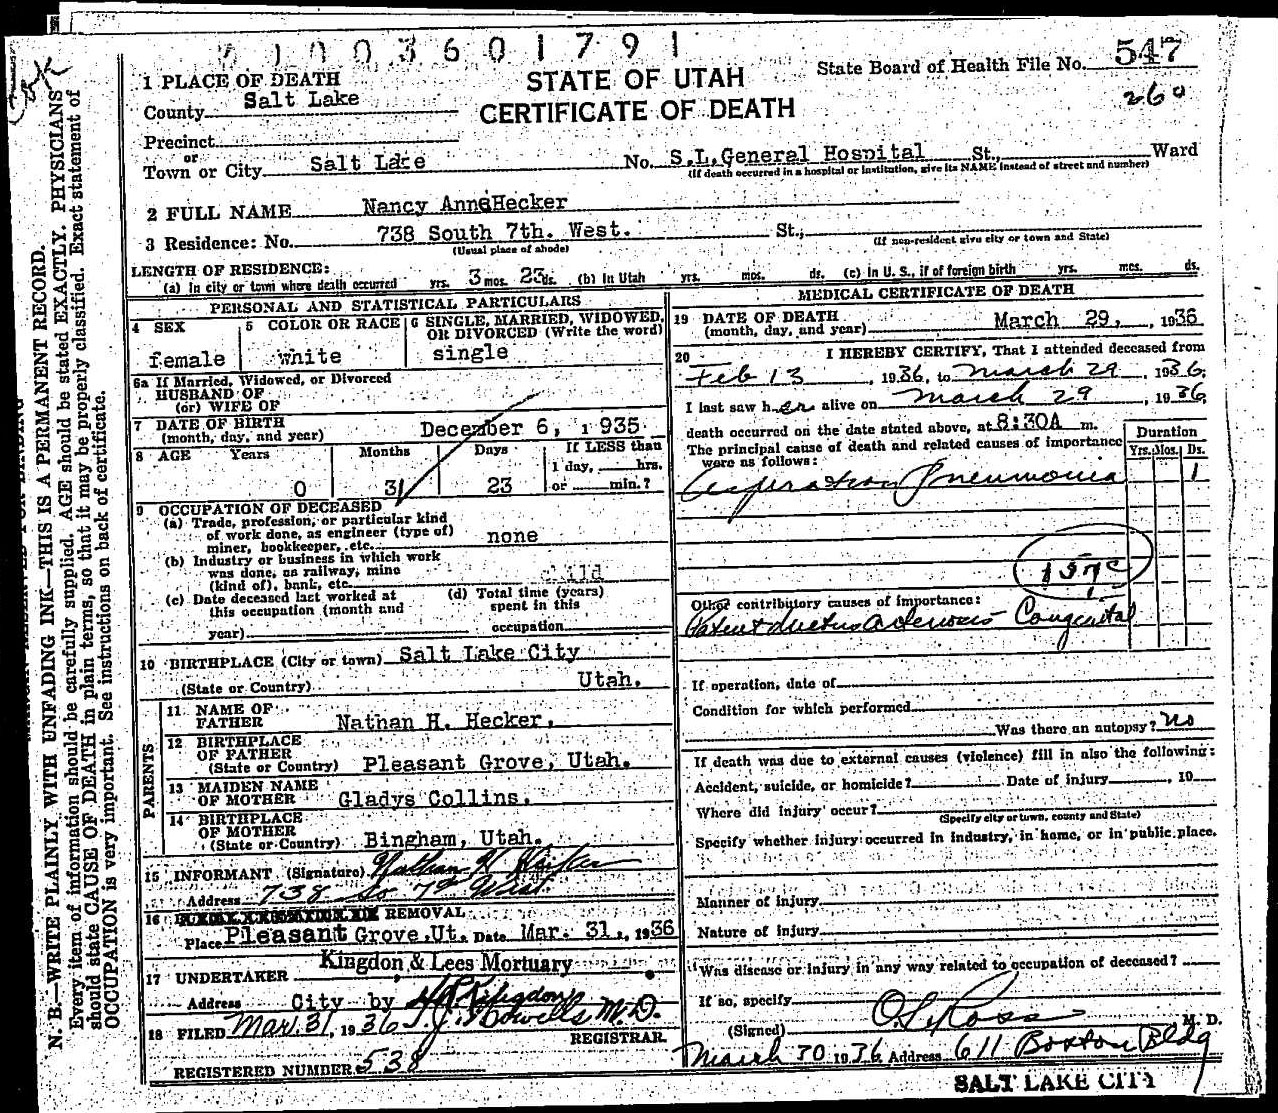 1003601791
1 PLACE OF DEATH
STATE OF UTAH
State Board of Health File No. 547
County Salt Lake
CERTIFICATE OF DEATH
260
Precinct
or
Town or City Salt Lake No. S.L.General Hospital St., Ward
(If death occurred in a hospital or institution, give its NAME instead of street and number)
2 FULL NAME Nancy Anne Hecker
3 Residence: No. 738 South 7th. West. St.,
(Usual place of abode) (If non-resident give city or town and State)
LENGTH OF RESIDENCE:
(a) In city or town where death occurred yrs. 3 mos. 23 ds. (b) In Utah yrs. mos. ds. (c) In U. S., if of foreign birth yrs. mos. ds.
PERSONAL AND STATISTICAL PARTICULARS
4 SEX
female
5 COLOR OR RACE
white
6 SINGLE, MARRIED, WIDOWED,
OR DIVORCED (Write the word)
single
6a If Married, Widowed, or Divorced
HUSBAND OF
(or) WIFE OF
7 DATE OF BIRTH
(month, day, and year) December 6, 1935
8 AGE Years Months Days If LESS than
1 day, hrs.
0 3 23 or min.?
9 OCCUPATION OF DECEASED
(a) Trade, profession, or particular kind
of work done, as engineer (type of)
miner, bookkeeper, etc. none
(b) Industry or business in which work
was done, as railway, mine
(kind of), bank, etc. child
(c) Date deceased last worked at
this occupation (month and
year)
(d) Total time (years)
spent in this
occupation
10 BIRTHPLACE (City or town) Salt Lake City
(State or Country) Utah.
PARENTS
11 NAME OF
FATHER Nathan H. Hecker.
12 BIRTHPLACE
OF FATHER
(State or Country) Pleasant Grove, Utah.
13 MAIDEN NAME
OF MOTHER Gladys Collins.
14 BIRTHPLACE
OF MOTHER
(State or Country) Bingham, Utah.
15 INFORMANT (Signature) Nathan H Hecker
Address 738 So 7th West.
16 REMOVAL
Place Pleasant Grove,Ut. Date Mar. 31., 1936
17 UNDERTAKER Kingdon & Lees Mortuary
Address City by
18 FILED Mar. 31, 1936 M.D.
REGISTRAR.
REGISTERED NUMBER 538
MEDICAL CERTIFICATE OF DEATH
19 DATE OF DEATH
(month, day, and year) March 29, , 1936
20 I HEREBY CERTIFY, That I attended deceased from
Feb 13 , 1936, to March 29 , 1936,
I last saw her alive on March 29 , 1936,
death occurred on the date stated above, at 8:30A m.
The principal cause of death and related causes of importance
were as follows:
Duration
Yrs. Mos. Ds.
Aspiration Pneumonia 1
157c
Other contributory causes of importance:
Patent ductus arteriosis - Congenital
If operation, date of
Condition for which performed
Was there an autopsy? no
If death was due to external causes (violence) fill in also the following:
Accident, suicide, or homicide? Date of injury , 19
Where did injury occur?
(Specify city or town, county and State)
Specify whether injury occurred in industry, in home, or in public place.
Manner of injury
Nature of injury
Was disease or injury in any way related to occupation of deceased?
If so, specify
(Signed) O.S. Ross M. D.
March 30 1936 Address 611 Boston Bldg
SALT LAKE CITY
N. B.—WRITE PLAINLY WITH UNFADING INK—THIS IS A PERMANENT RECORD.
Every item of information should be carefully supplied. AGE should be stated EXACTLY. PHYSICIANS
should state CAUSE OF DEATH in plain terms, so that it may be properly classified. Exact statement of
OCCUPATION is very important. See instructions on back of certificate.